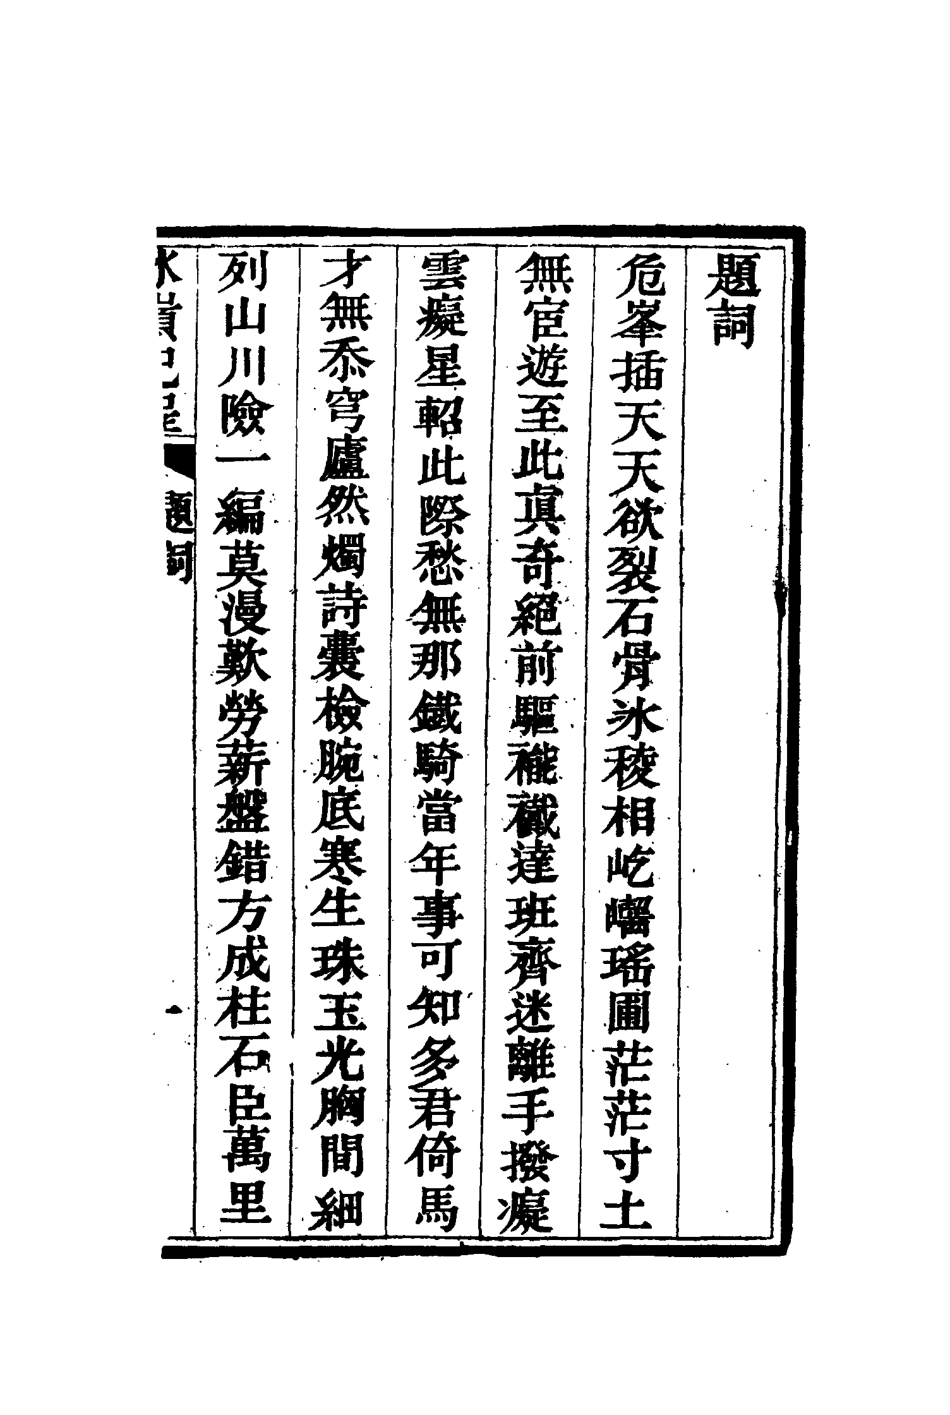 題詞
危峯插天天欲裂石骨氷稜相屹嶍瑤圃茫茫寸土
無宦遊至此眞奇絕前驅䙰襶達班齊迷離手撥癡
雲癡星軺此際愁無那鐵騎當年事可知多君倚馬
才無忝穹廬然燭詩囊檢腕底寒生珠玉光胸間細
列山川險一編莫漫歎勞薪盤錯方成柱石臣萬里
題詞
一